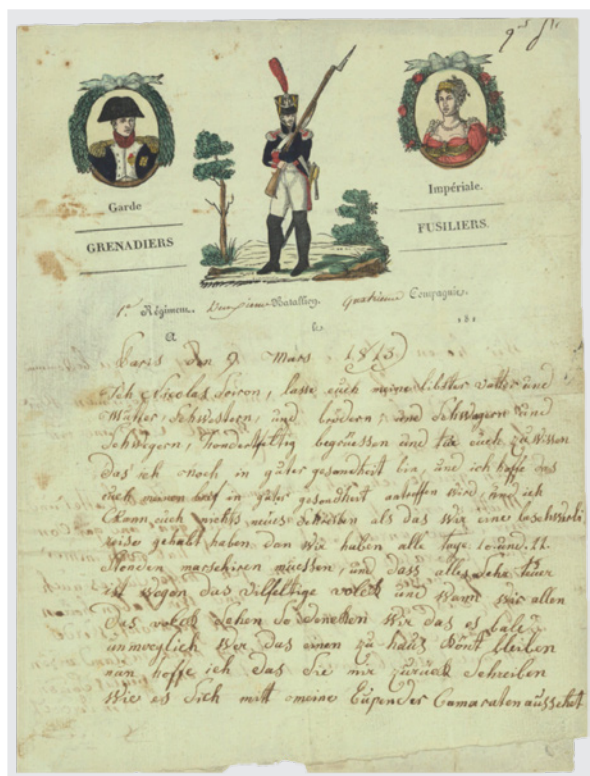 Garde
GRENADIERS
Impériale.
FUSILIERS.
1er Régiment. Deuxieme Bataillon. quatrieme Compagnie.
A le 181
Paris, den 9 Mars. 1813
Ich Nicolas Piron, lasse euch meine libster vatter und
Mutter, Schwestern, und brüdern, und Schwegern und
Schwegern, Hondertfeltig begruessen und tue euch zu wissen
das ich noch in guter gesondheit bin, und ich hoffe das
euch meinen brif in guter gesondheit antreffen wird, und ich
Kann euch nichts neues Schreiben als das wir eine beschwerli
reise gehabt haben dan wir haben alle tage 10. und. 11.
Stonden marschiren muessen, und dass alles Sehr teuer
ist wegen das vilfeltige volck und wann wir allen
das volck Sehen So dencken wir das es
unmoeglich das einen zu haus Könt bleiben
nun hoffe ich das Sie mir zurück Schreiben
wie es Sich mitt meine Eupender Camaraten aussehet